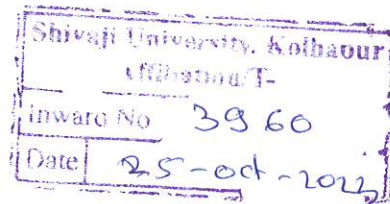 Shivaji University, Kolhapur
Affiliation/T-
Inward No 3960
Date 25-oct-2023